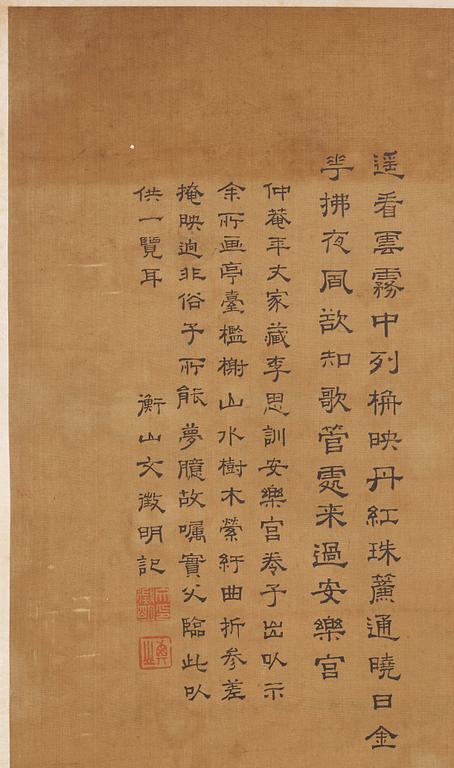 遥看雲霧中列桷映丹紅珠簾通曉日金
華拂夜風欲知歌管處来過安樂宮
仲菴年丈家藏李思訓安樂宮卷子出以示
余所画亭臺檻榭山水樹木縈紆曲折参差
掩映迥非俗子所能夢臆故囑實父臨此以
供一覽耳
衡山文徵明記